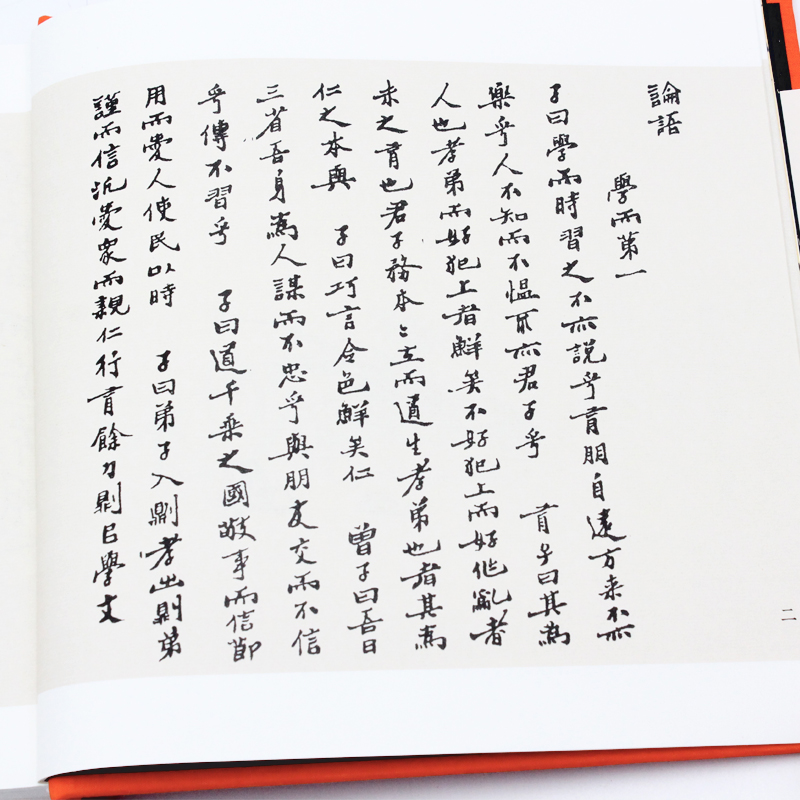 論語
學而第一
子曰學而時習之不亦說乎有朋自遠方来不亦
樂乎人不知而不愠不亦君子乎　有子曰其為
人也孝弟而好犯上者鮮矣不好犯上而好作亂者
未之有也君子務本〻立而道生孝弟也者其為
仁之本與　子曰巧言令色鮮矣仁　曾子曰吾日
三省吾身為人謀而不忠乎與朋友交而不信
乎傳不習乎　子曰道千乘之國敬事而信節
用而愛人使民以時　子曰弟子入則孝出則弟
謹而信汎愛衆而親仁行有餘力則以學文
二